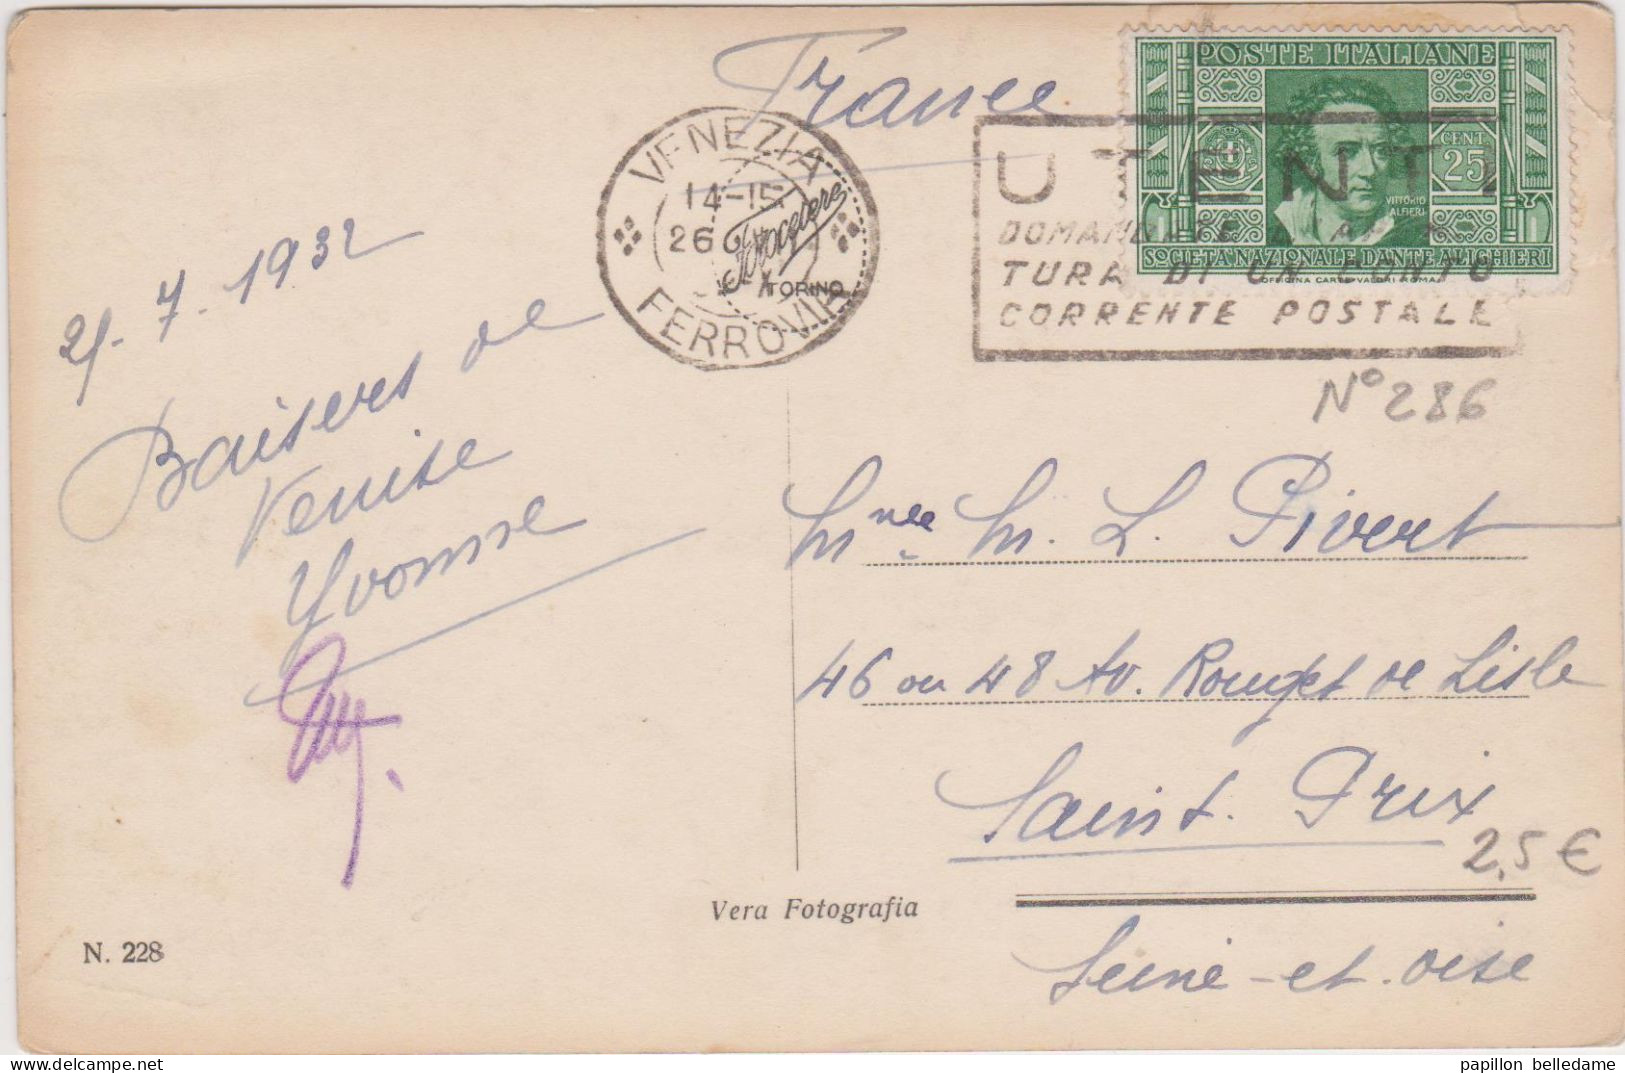 France
POSTE ITALIANE
CENT
25
VITTORIO
ALFIERI
SOCIETÀ NAZIONALE DANTE ALIGHIERI
OFFICINA CARTE VALORI ROMA
VENEZIA
14-15
26
FERROVIA
Fotocelere
TORINO
UTENTI
DOMANDATE
TURA DI UN CONTO
CORRENTE POSTALE
N° 286
7. 1932
Baisers de
Venise
Yvonne
M. L. Pivert
46 ou 48 Av. Rouget de Lisle
Saint. Prix
2,5 €
Seine-et-oise
Vera Fotografia
N. 228
papillon belledame